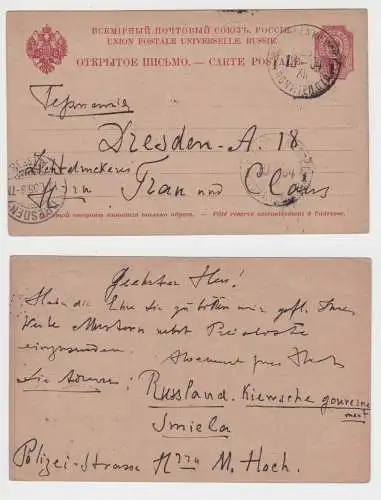 ВСЕМІРНЫЙ ПОЧТОВЫЙ СОЮЗЪ. РОССІЯ
UNION POSTALE UNIVERSELLE. RUSSIE.
ОТКРЫТОЕ ПИСЬМО. — CARTE POSTALE
Германия
Dresden-A. 18
Lichtdruckerei
Herrn Fran und Claus
DRESDEN
Côté réservé exclusivement à l'adresse.
Geehrter Herr!
Habe die Ehre Sie zu bitten mir gefl. Ihre
Werke Mustern nebst Preisliste
einzusenden.
Die Adresse:
Russland. Kiewsche gouverne
ment
Smiela
Polizei-Strasse M. Hoch.